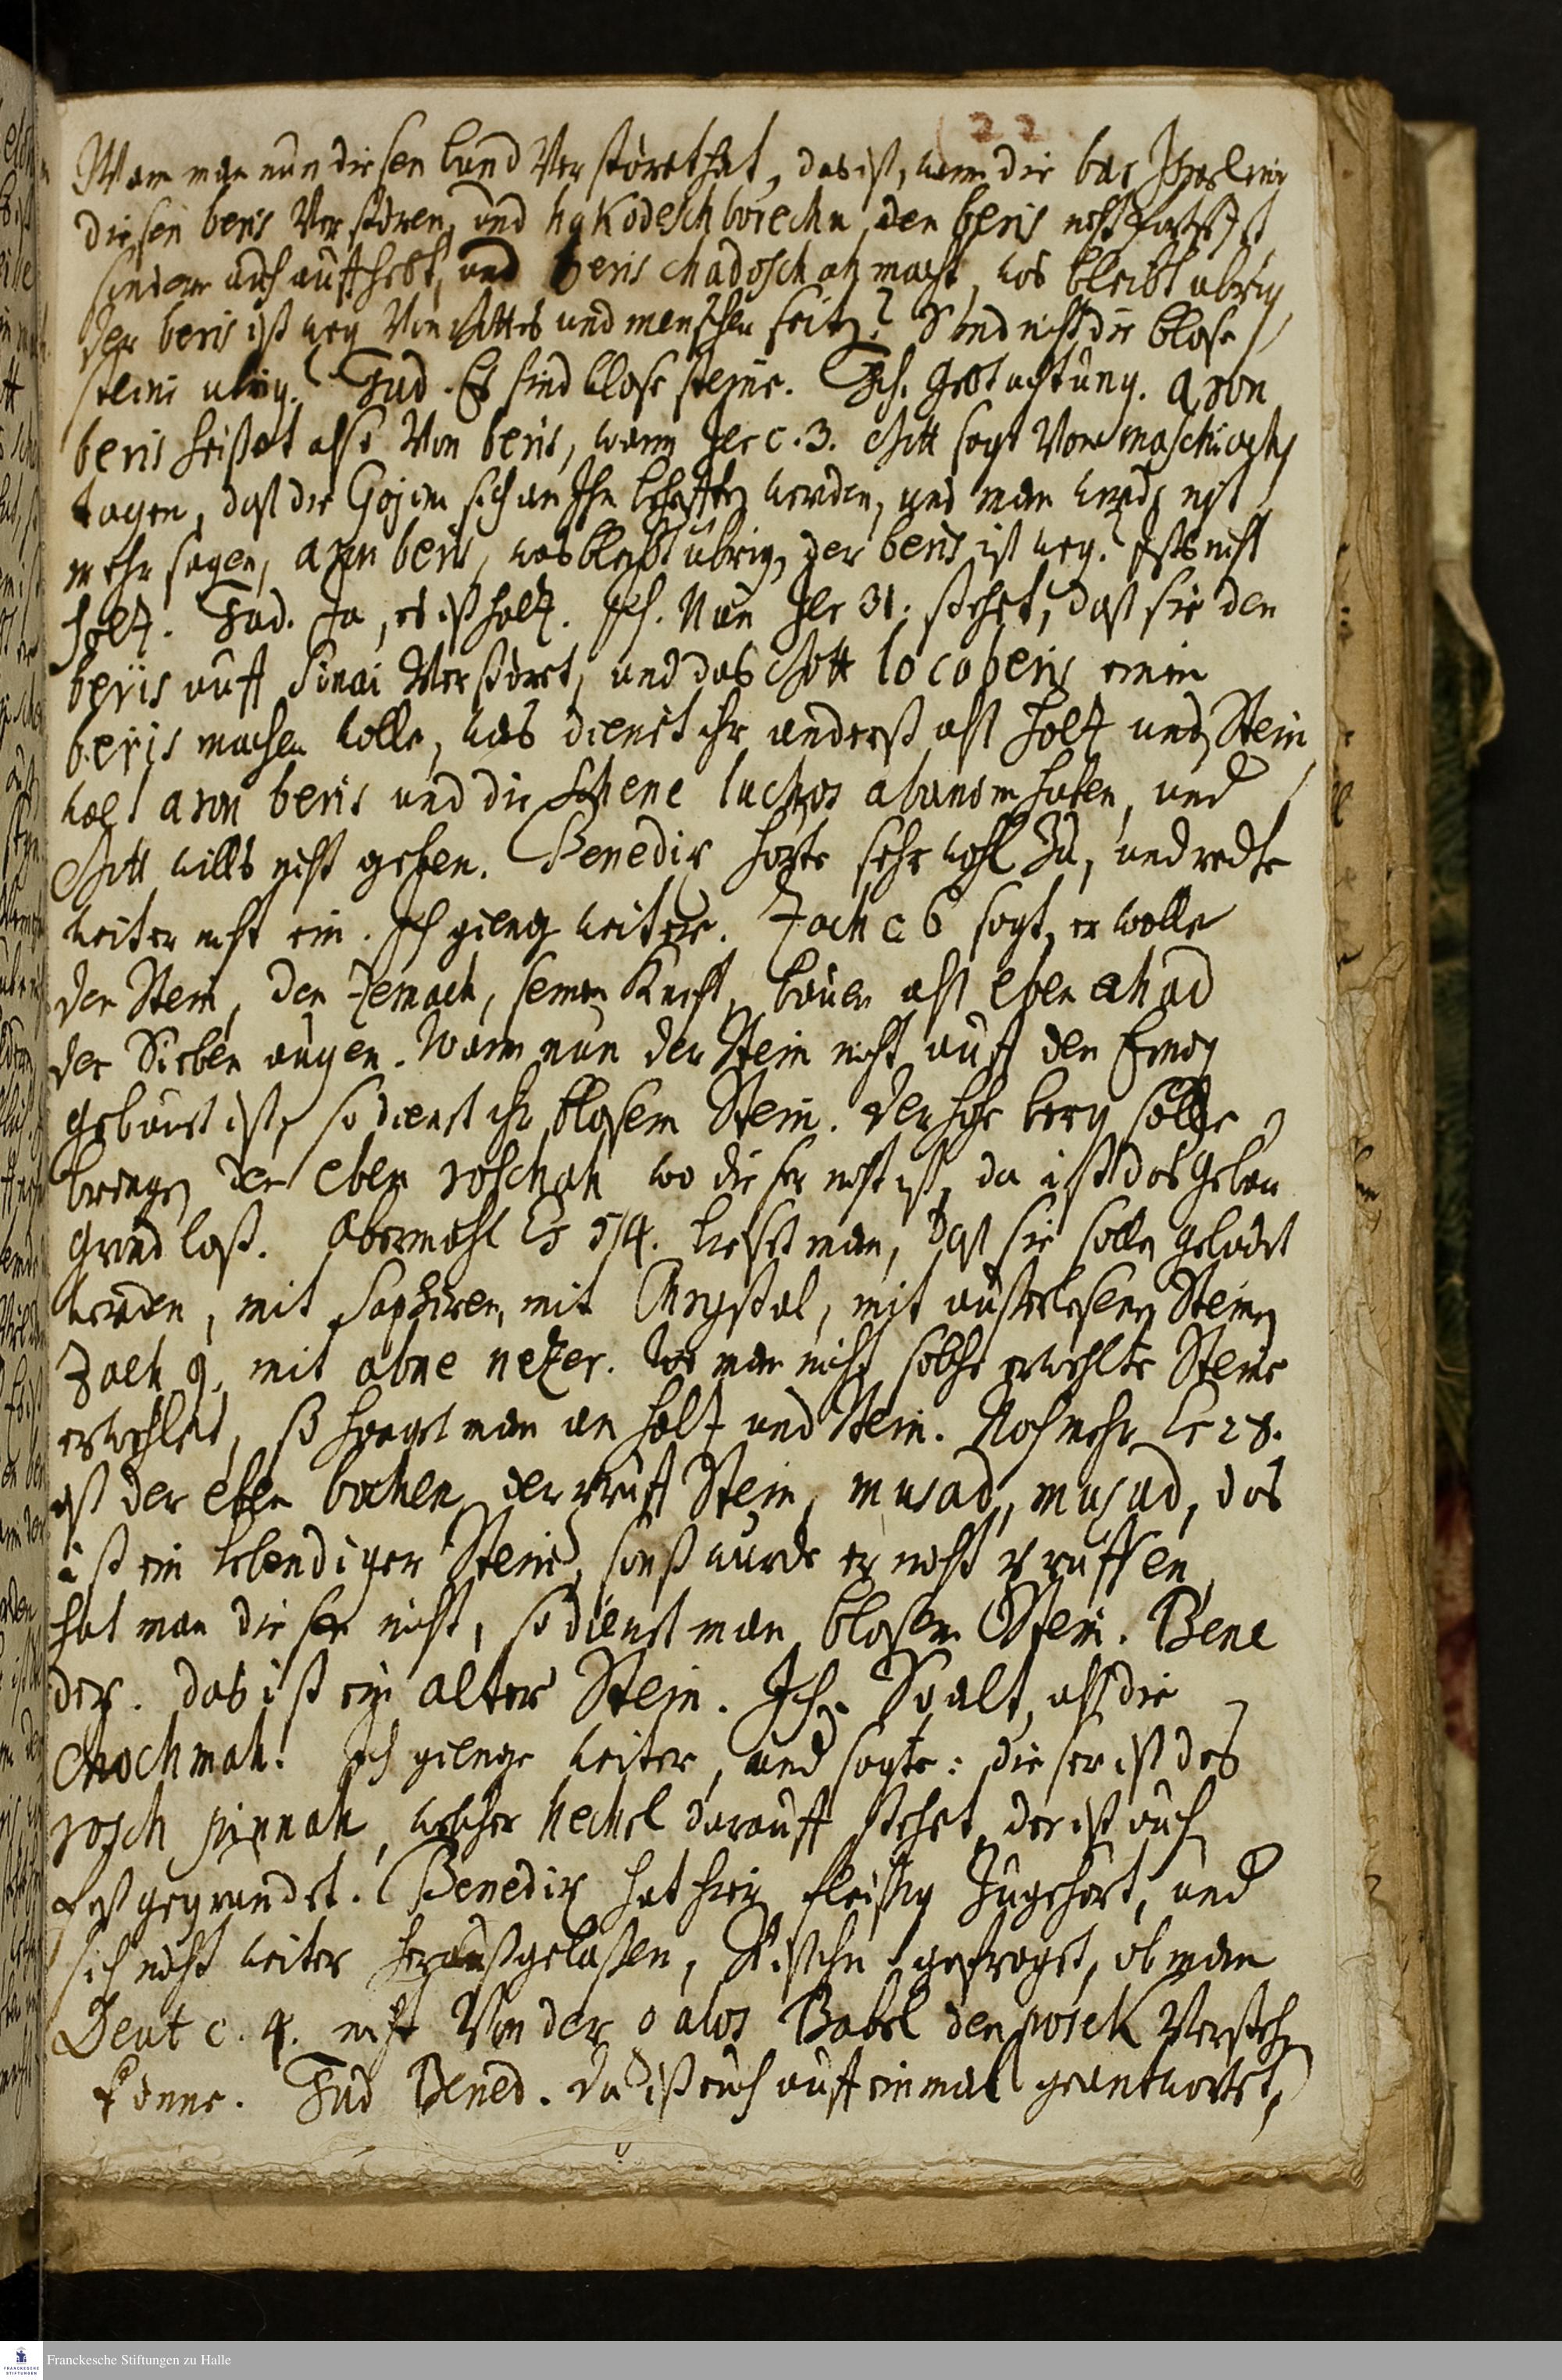 22
Wann man nun diesen bund Verstöret hat, das ist, wenn die
diesen beris Verstören, und hakodesch borechu den beris nicht
sondern auch auffhebt, und beris chadoschah macht, was bleibt ubrig
der beris ist weg Von Gottes und menschen seite? Sind nicht die blose
steine ubrig? Jud. Es sind blose steine. Ich. Gebt achtung. aron
beris heißet also Von beris, wann Jer c. 3. Gott sagt Von maschiachs
tagen, daß die Gojim sich an Ihn behefften werden, und man werde nicht
mehr sagen, aron beris, was bleibt ubrig, der beris ist weg? Ists nicht
holtz. Jud. Ja, es ist holtz. Ich. Nun Jer 31. stehet, daß sie den
beris auff Sinai Verstöret, und das Gott lo caberis einen
beris machen wolle, was dienet ihr anderst alß holtz und Stein
weil aron beris und die schene luchos abanim haben, und
Gott wills nicht geben. Benedix hörte sehr wohl zu, und redte
weiter nicht ein. Ich gieng weiter. Zach c 6 sagt, er wolle
den Stein, den Zemach, seinen Knecht, bauen alß eben achad
der Sieben augen. Wann nun der Stein nicht auff den
gebauet ist, so dienet ihr blosem Stein. Der hohe berg solle
bringen den eben roschah wo dieser nicht ist, da ist das Gebäu
grundloß. Abermahl Es 54. lieset man, daß sie solle gebauet
werden, mit Saphiren, mit Chrystal, mit außerlesenen Steinen
Zach 9, mit abne nezer. Wo man nicht solche erwehlte Steine
erwehlet, so hanget man an holtz und Stein. Noch mehr Es 28.
ist der eben bochen der prüff Stein, musad, musad, das
ist ein lebendiger Stein, sonst wurde er nicht prüffen,
hat man diesen nicht, so dienet man blosem Stein. Bene
dix. das ist ein alter Stein. Ich. So alt, alß die
chochmah. Ich gienge weiter, und sagte: dieser ist das
rosch pinnah, welcher hechel darauff stehet, der ist auch
fest gegrundet. Benedix hat hier fleißig Zugehört, und
sich nicht weiter heraußgelaßen, gefraget, ob man
Deut c. 4. nicht Von der Galos Babel den posek Verstehen
könne. Jud Bened. Da ist euch auff einmal geantwortet,
Franckesche Stiftungen zu Halle